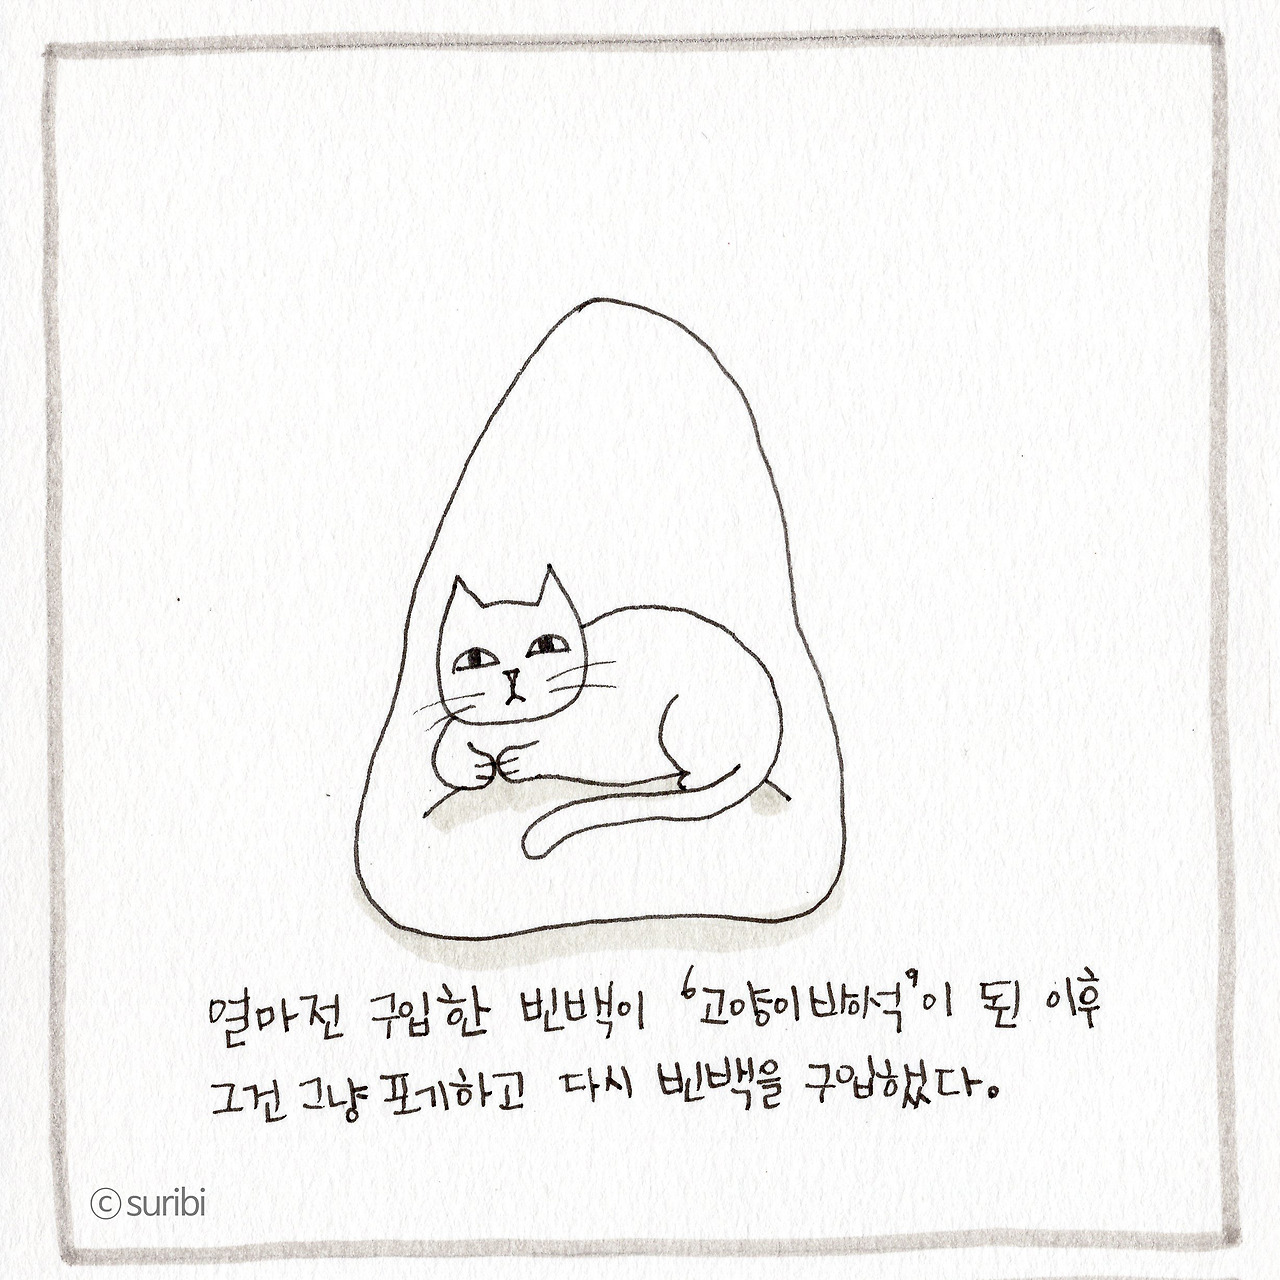 얼마전 구입한 빈백이 '고양이 방석'이 된 이후
그건 그냥 포기하고 다시 빈백을 구입했다.
© suribi